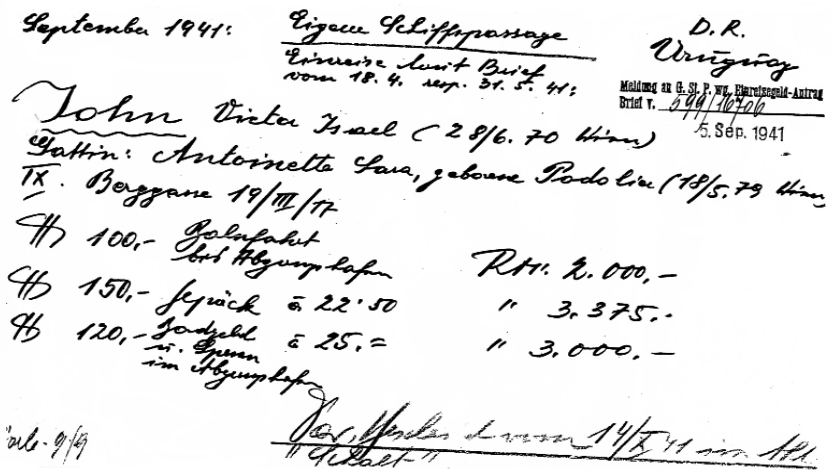 September 1941:
Eigene Schiffspassage
D. R.
Uruguay
Einreise laut Brief
vom 18.4. resp. 31.5.41:
Meldung an G. St. P. wg. Einreisegeld-Antrag
Brief v. 599/16706
5. Sep. 1941
John Victor Israel (28/6. 70 Wien)
Gattin: Antoinette Sara, geborene Podolier (18/5. 79 Wien)
IX. Berggasse 19/III/17
$ 100,- Bahnfahrt
bis Abgangshafen
RM. 2.000,-
$ 150,- Gepäck à 22'50 " 3.375.-
$ 120,- à 25.= " 3.000.-
u. Spesen
im Abgangshafen
Bescheid vom 14/X 41 im Akt
9/9